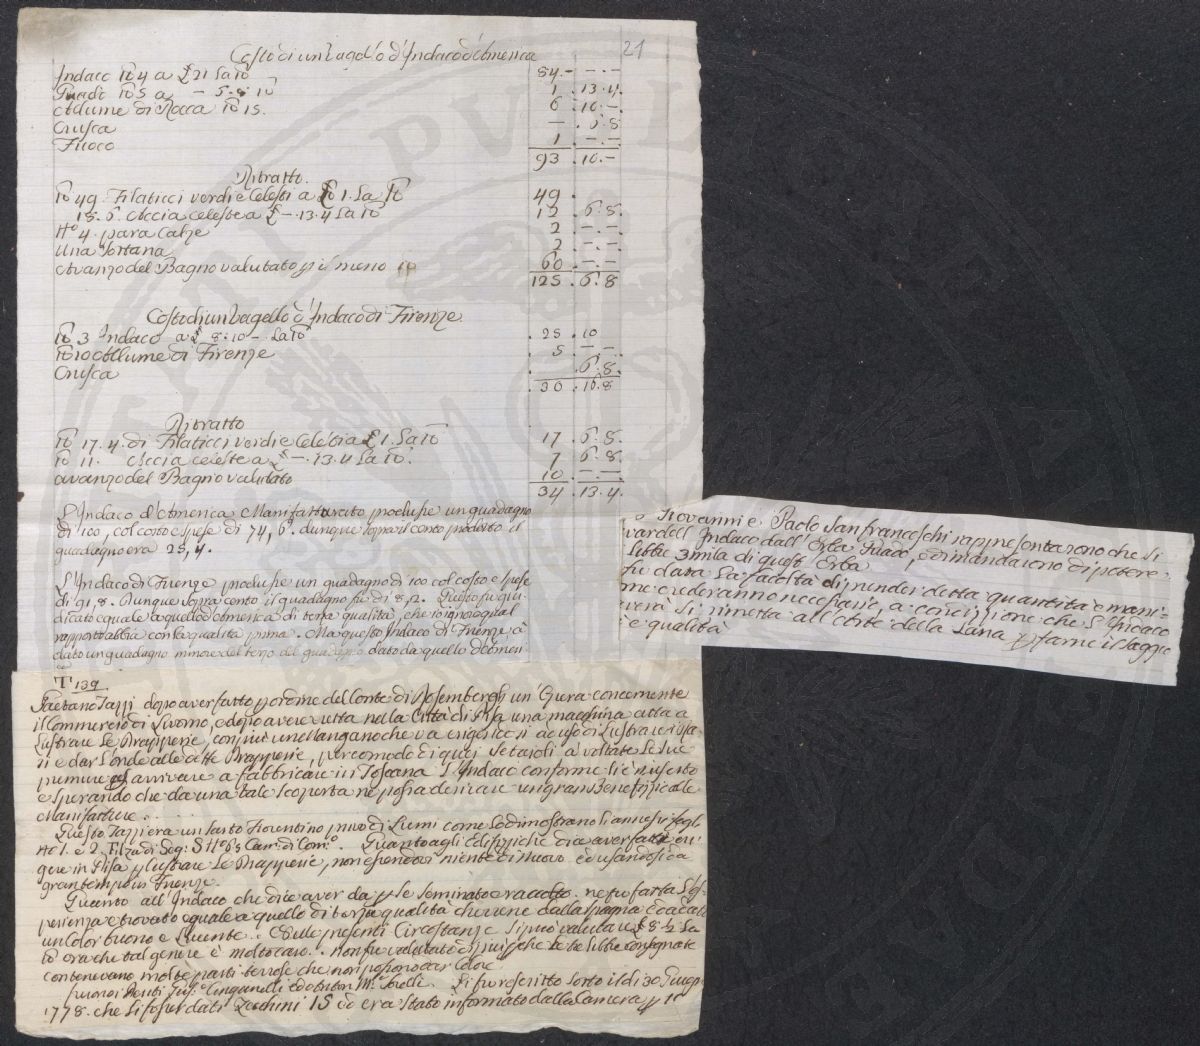 21
Costo di un Vagello d'Indaco d'America
Indaco lb 4 a £ 21 la lb 84.- -.-
Guado lb 5 a - 6.8 lb 1.13.4.
Allume di Rocca lb 15. 6.10.-
Crusca -.6.8
Fuoco 1.-.-
93.10.-
Ritratto
lb 49. Filaticci verdi e Celesti a £ 1. la lb 49.
18.6. Accia celeste a £ -.13.4 la lb 12.6.8.
N° 4. para Calze 2.-.-
Una Sottana 2.-.-
Avanzo del Bagno valutato p il meno 60.-.-
125.6.8
Costo di un Vagello d'Indaco di Firenze
lb 3 Indaco a £ 8.10 - la lb 25.10
lb 10 Allume di Firenze 5.-.-
Crusca .6.8.
30.16.8
Ritratto
lb 17.4. di Filaticci verdi e Celesti a £ 1. la lb 17.6.8.
lb 11. Accia celeste a £ -.13.4 la lb. 7.6.8.
avanzo del Bagno valutato 10.-.-
34.13.4.
L'Indaco d'America Manifatturato produsse un guadagno
di 100, col costo e spese di 74,6. dunque sopra il cento produsse il
guadagno era 25,4.
L'Indaco di Firenze produsse un guadagno di 100 col costo e spese
di 91,8. Dunque sopra cento il guadagno fu di 8,2. Questo fu giu-
dicato eguale a quello d'America di terza qualità, che io ignoro qual
rapporto abbia con la qualità prima. Ma questo Indaco di Firenze à
dato un guadagno minore del terzo del guadagno dato da quello d'Ameri
Giovanni e Paolo Sanfranceschi rappresentarono che si
dell'Indaco dall'Erba Guado, e dimandarono di potere
libbre 3 mila di quest'Erba
fu data la facoltà di prender detta quantità e mani-
me crederanno necessarie, a condizione che l'Indaco
si rimetta all'Arte della Lana p farne il saggio
e qualità
T' 139
Gaetano Tazzi dopo aver fatto p ordine del Conte di Rosembergh un'Opera concernente
il Commercio di Livorno, e dopo avere nella Città di Pisa una macchina atta a
Lustrare Le Drapperie, con più un Mangano che va ad uso di Lustrare i
e dar l'onde alle dette Drapperie, per comodo di quei Setaioli à voltate Le sue
premure ad arrivare a fabbricare in Toscana L'Indaco conforme li è riuscito
e sperando che da una tale scoperta ne possa derivare un gran Benefizio alle
Manifatture..
Questo Tazzi era un Sarto Fiorentino privo di Lumi come lo dimostrano li annessi fogli
N° 1. e 2. Filza di Seg: 8 N° 65 Cam: di Com°. Quanto agli Edifizzi che dice aver fatti eri-
gere in Pisa p lustrare Le Drapperie, non essendovi niente di nuovo ed usandosi da
gran tempo in Firenze.
Quanto all'Indaco che dice aver da p se seminato e raccolto. ne fu fatta l'es-
perienza e trovato eguale a quello di terza qualità che viene dalla Spagna
un Color buono e Lucente. Nelle presenti Circostanze si può valutare £ 8 1/2 la
lb ora che tal genere è molto caro. non fu valutato di più perche Le tre libbre consegnate
contenevano molte parti terrose che non possono dar Colore
furono i Periti Gius. Cinganelli ed Anton M. Torelli. Li fu rescritto sotto il dì 30 Giugn
1778. che li fosser dati Zecchini 15 ed era stato informato dalla Camera p 10